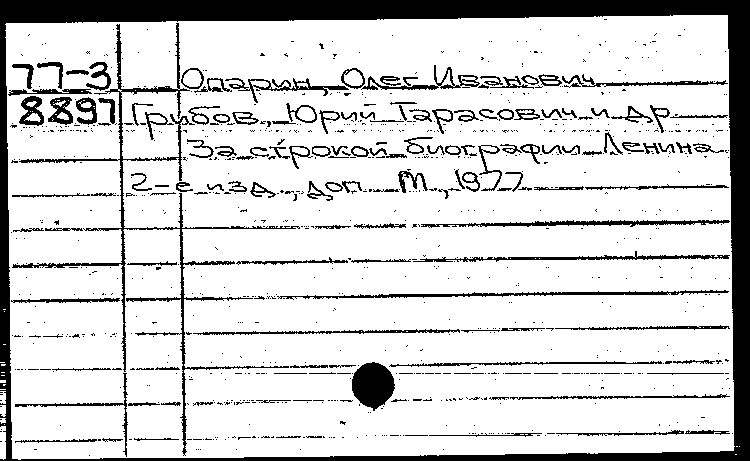 77-3 Опарин, Олег Иванович
8897 Грибов, Юрий Тарасович и др.
За строкой биографии Ленина
2-е изд., доп. М., 1977